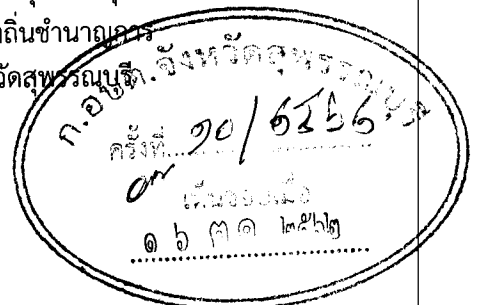 ถิ่นชำนาญการ
วัดสุพรรณบุรี
ก.อบต.จังหวัดสุพรรณบุรี
ครั้งที่ ๑๐/๒๕๖๒
เห็นชอบเมื่อ
๑๖ ต.ค. ๒๕๖๒